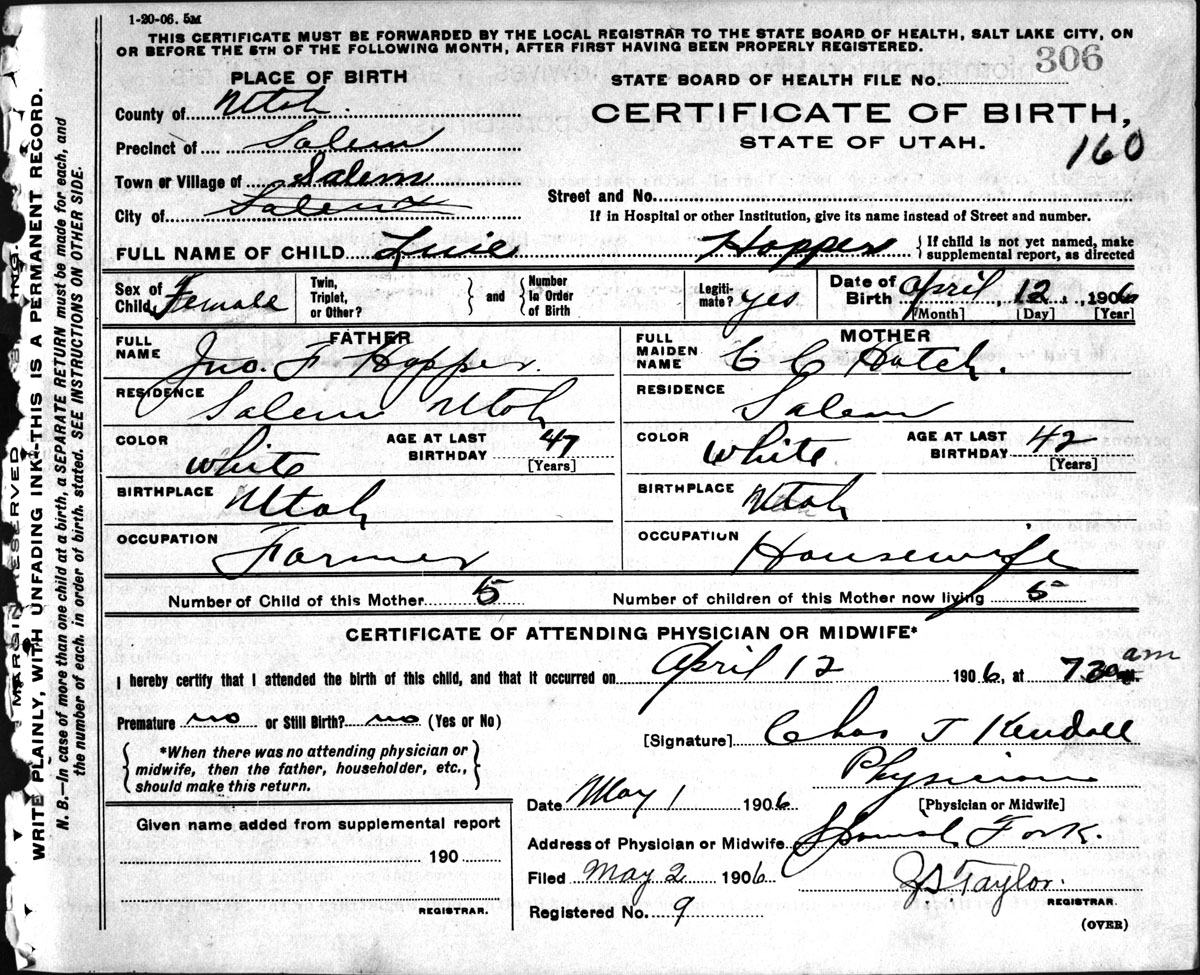 1-20-06. 5M
THIS CERTIFICATE MUST BE FORWARDED BY THE LOCAL REGISTRAR TO THE STATE BOARD OF HEALTH, SALT LAKE CITY, ON
OR BEFORE THE 5TH OF THE FOLLOWING MONTH, AFTER FIRST HAVING BEEN PROPERLY REGISTERED.
PLACE OF BIRTH
STATE BOARD OF HEALTH FILE No. 306
County of Utah.
CERTIFICATE OF BIRTH,
Precinct of Salem
STATE OF UTAH.
160
Town or Village of Salem
Street and No.
City of Salem
If in Hospital or other Institution, give its name instead of Street and number.
FULL NAME OF CHILD Hopper { If child is not yet named, make
supplemental report, as directed
Sex of Child Female Twin, Triplet, or Other? } and { Number in Order of Birth Legiti-mate? yes Date of Birth April 12, 1906
[Month] [Day] [Year]
FATHER
FULL NAME Jno. F Hopper.
MOTHER
FULL MAIDEN NAME C C Hatch.
RESIDENCE Salem Utah
RESIDENCE Salem
COLOR White AGE AT LAST BIRTHDAY 47 [Years]
COLOR White AGE AT LAST BIRTHDAY 42 [Years]
BIRTHPLACE Utah
BIRTHPLACE Utah
OCCUPATION Farmer
OCCUPATION Housewife
Number of Child of this Mother 5 Number of children of this Mother now living 5
CERTIFICATE OF ATTENDING PHYSICIAN OR MIDWIFE*
I hereby certify that I attended the birth of this child, and that it occurred on April 12 1906, at 7.30 am
Premature no or Still Birth? no (Yes or No)
[Signature] Chas T Kendall
*When there was no attending physician or
midwife, then the father, householder, etc.,
should make this return.
Physician
Date May 1 1906
[Physician or Midwife]
Given name added from supplemental report
Address of Physician or Midwife Spanish Fork.
190
Filed May 2 1906
Taylor.
REGISTRAR.
REGISTRAR.
Registered No. 9
(OVER)
WRITE PLAINLY, WITH UNFADING INK—THIS IS A PERMANENT RECORD.
N. B.—In case of more than one child at a birth, a SEPARATE RETURN must be made for each, and
the number of each, in order of birth, stated. SEE INSTRUCTIONS ON OTHER SIDE.